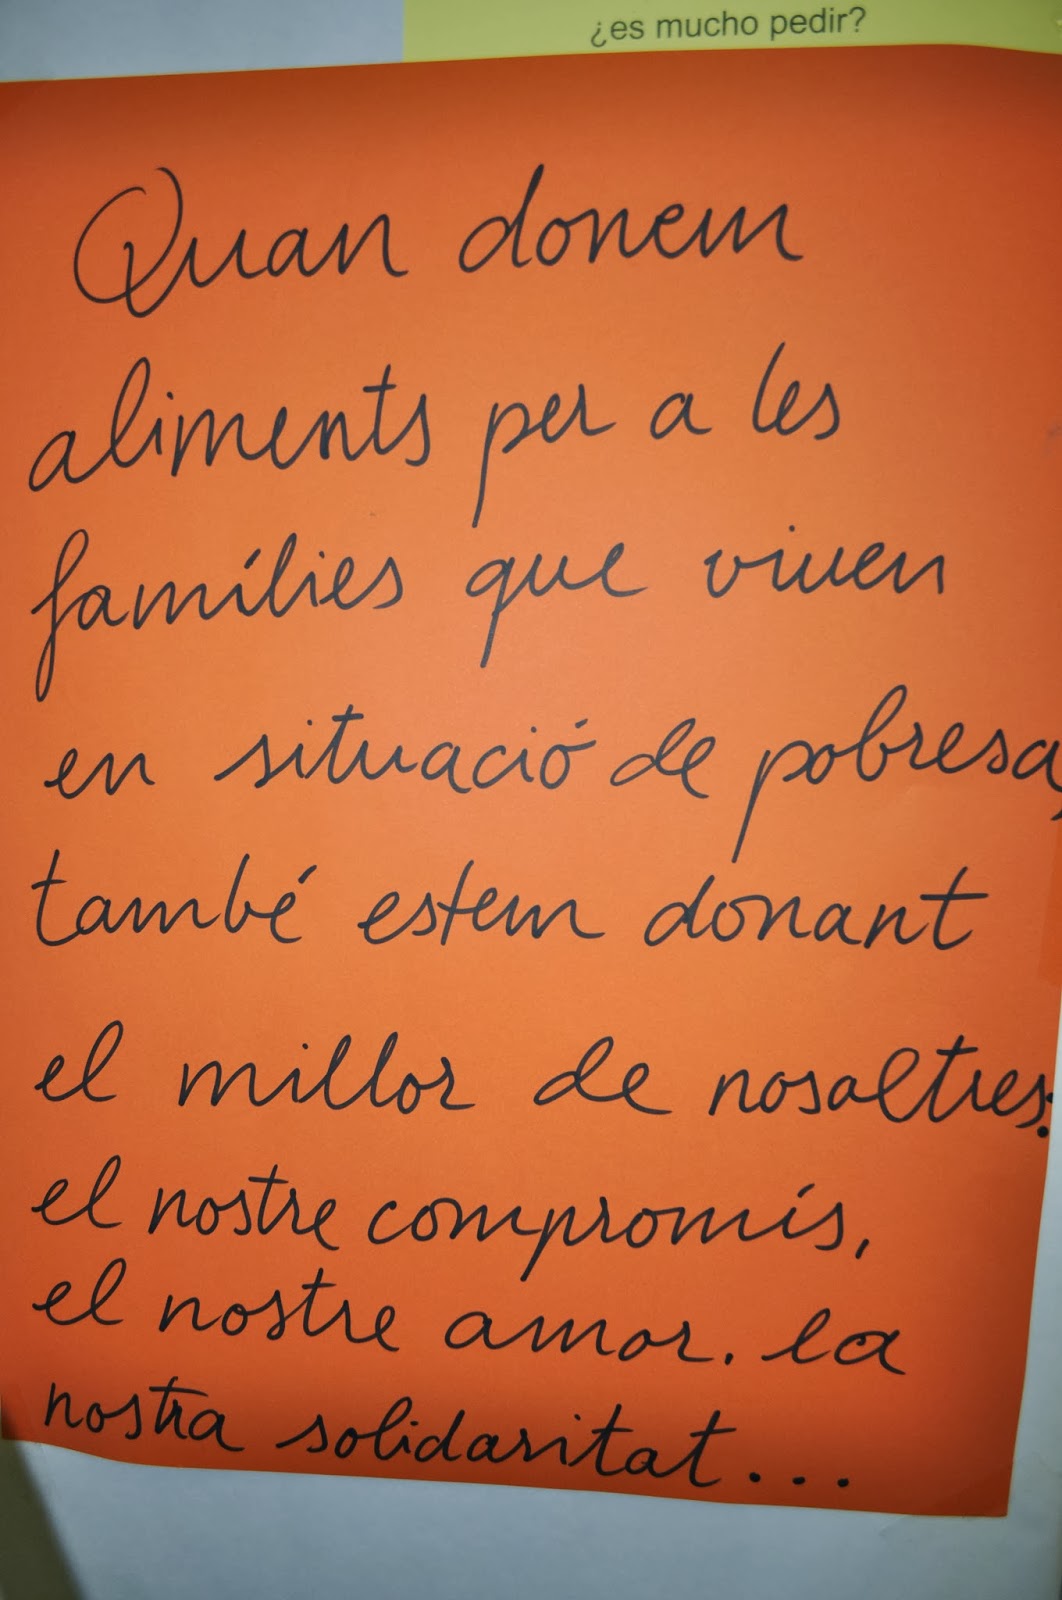 ¿es mucho pedir?
Quan donem
aliments per a les
famílies que viuen
en situació de pobresa,
també estem donant
el millor de nosaltres:
el nostre compromís,
el nostre amor. la
nostra solidaritat...